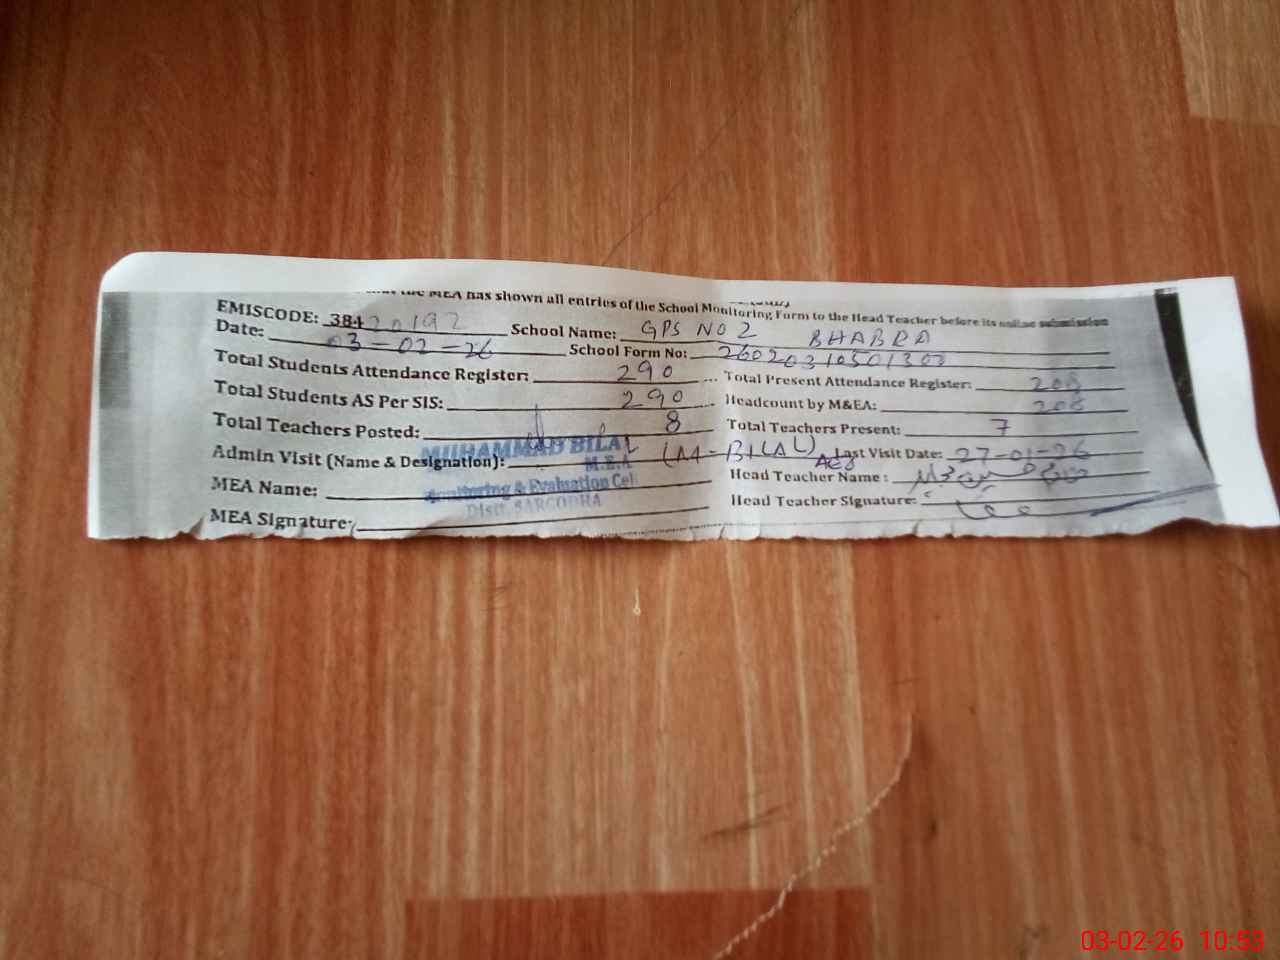 the MEA has shown all entries of the School Monitoring Form to the Head Teacher before its online submission
EMISCODE: 38420192 School Name: GPS NO 2 BHABRA
Date: 03-02-26 School Form No:
Total Students Attendance Register: 290 Total Present Attendance Register: 208
Total Students AS Per SIS: 290 Headcount by M&EA: 208
Total Teachers Posted: 8 Total Teachers Present: 7
Admin Visit (Name & Designation): (M-BILAL) Last Visit Date: 27-01-26
MUHAMMAD BILAL
M.E.A
Monitoring & Evaluation Cell
Distt. SARGODHA
MEA Name: Head Teacher Name:
MEA Signature: Head Teacher Signature:
03-02-26 10:53